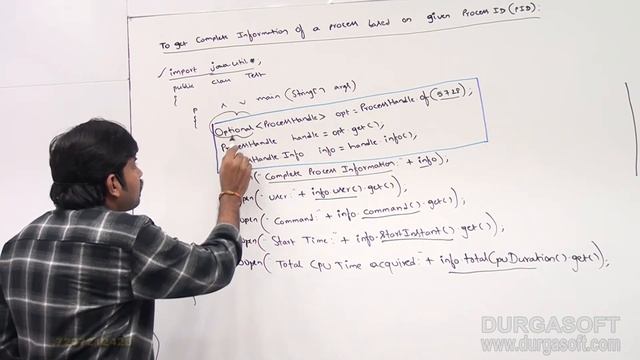 To get Complete Information of a process based on given Process ID (PID):
import java.util.*;
public class Test
{
p ^ v main (String[] args)
{
Optional <ProcessHandle> opt = ProcessHandle.of(5728);
ProcessHandle handle = opt.get();
Handle.Info info = handle.info();
open(" Complete Process Information:" + info);
open(" User:" + info.user().get());
open(" Command:" + info.command().get());
open(" Start Time:" + info.startInstant().get());
open(" Total Cpu Time acquired:" + info.totalCpuDuration().get());
DURGASOFT
www.durgasoft.com